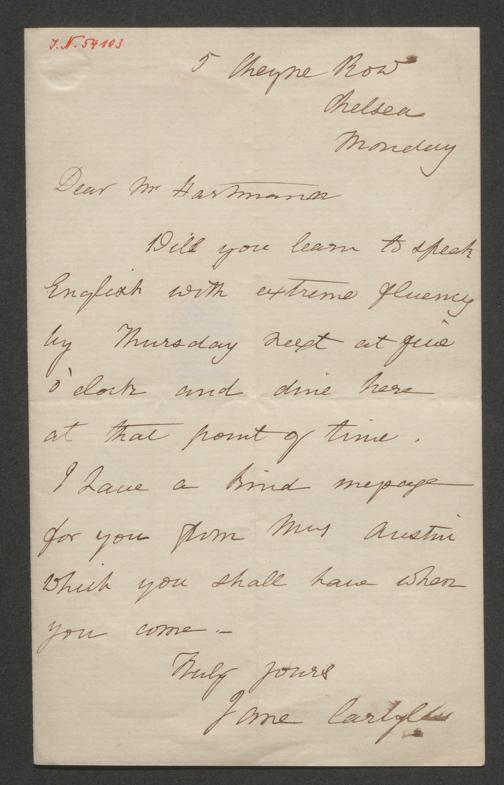 J.N. 54103
5 Cheyne Row
Chelsea
Monday
Dear Mr Hartmann
Will you learn to speak
English with extreme fluency
by Thursday next at five
o'clock and dine here
at that point of time.
I have a kind message
for you from Mrs Austin
which you shall have when
you come –
Truly yours
Jane Carlyle